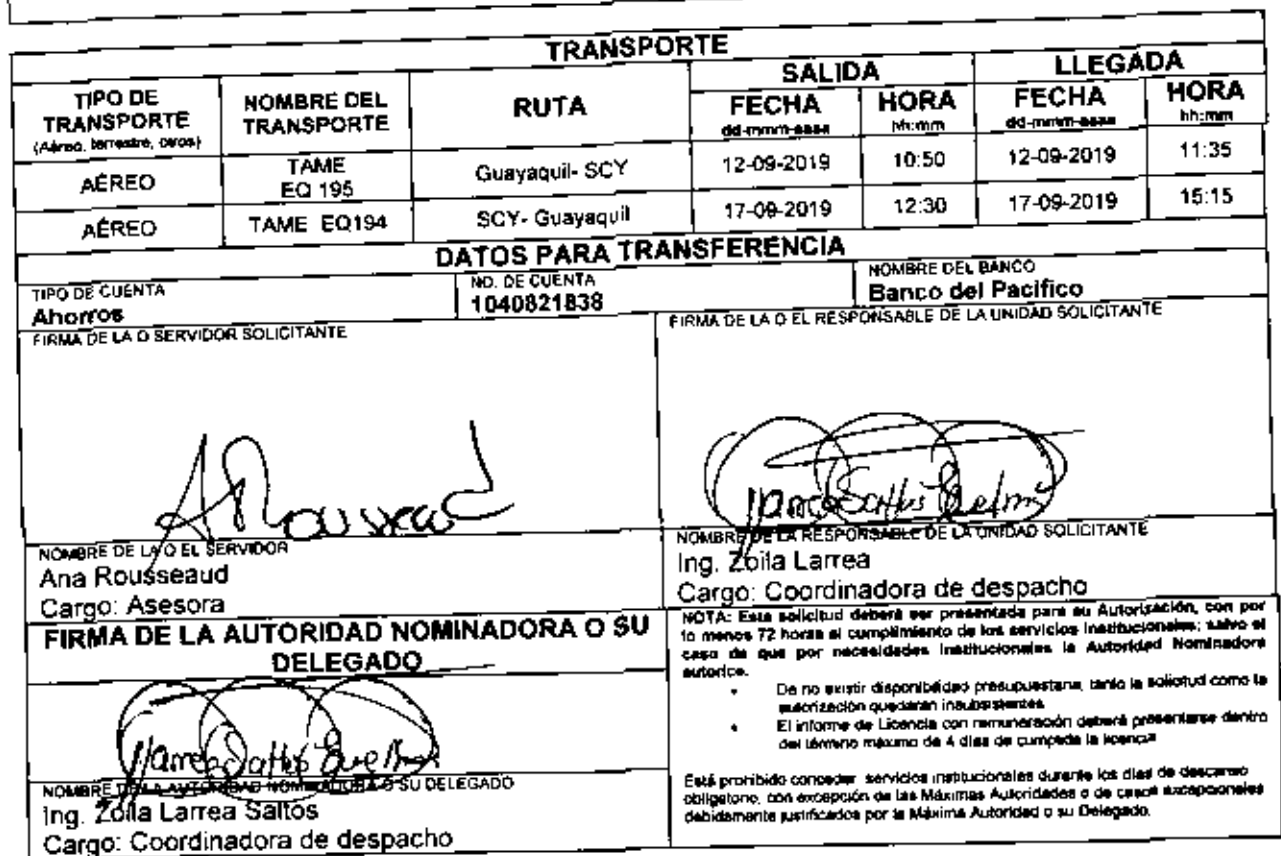 TRANSPORTE
SALIDA LLEGADA
TIPO DE TRANSPORTE NOMBRE DEL TRANSPORTE RUTA FECHA HORA FECHA HORA
(Aéreo, terrestre, otros) dd-mmm-aaaa hh:mm dd-mmm-aaaa hh:mm
AÉREO TAME EQ 195 Guayaquil- SCY 12-09-2019 10:50 12-09-2019 11:35
AÉREO TAME EQ194 SCY- Guayaquil 17-09-2019 12:30 17-09-2019 15:15
DATOS PARA TRANSFERENCIA
TIPO DE CUENTA NO. DE CUENTA NOMBRE DEL BANCO
Ahorros 1040821838 Banco del Pacifico
FIRMA DE LA O SERVIDOR SOLICITANTE FIRMA DE LA O EL RESPONSABLE DE LA UNIDAD SOLICITANTE
ARousseaud
NOMBRE DE LA O EL SERVIDOR
Ana Rousseaud
Cargo: Asesora
NOMBRE DE LA RESPONSABLE DE LA UNIDAD SOLICITANTE
Ing. Zoila Larrea
Cargo: Coordinadora de despacho
FIRMA DE LA AUTORIDAD NOMINADORA O SU
DELEGADO
NOMBRE DE LA AUTORIDAD NOMINADORA O SU DELEGADO
Ing. Zoila Larrea Saltos
Cargo: Coordinadora de despacho
NOTA: Esta solicitud deberá ser presentada para su Autorización, con por
lo menos 72 horas al cumplimiento de los servicios institucionales; salvo el
caso de que por necesidades institucionales la Autoridad Nominadora
autorice.
• De no existir disponibilidad presupuestaria, tanto la solicitud como la
autorización quedarán insubsistentes
• El informe de Licencia con remuneración deberá presentarse dentro
del término máximo de 4 días de cumplida la licencia
Está prohibido conceder servicios institucionales durante los días de descanso
obligatorio, con excepción de las Máximas Autoridades o de casos excepcionales
debidamente justificados por la Máxima Autoridad o su Delegado.